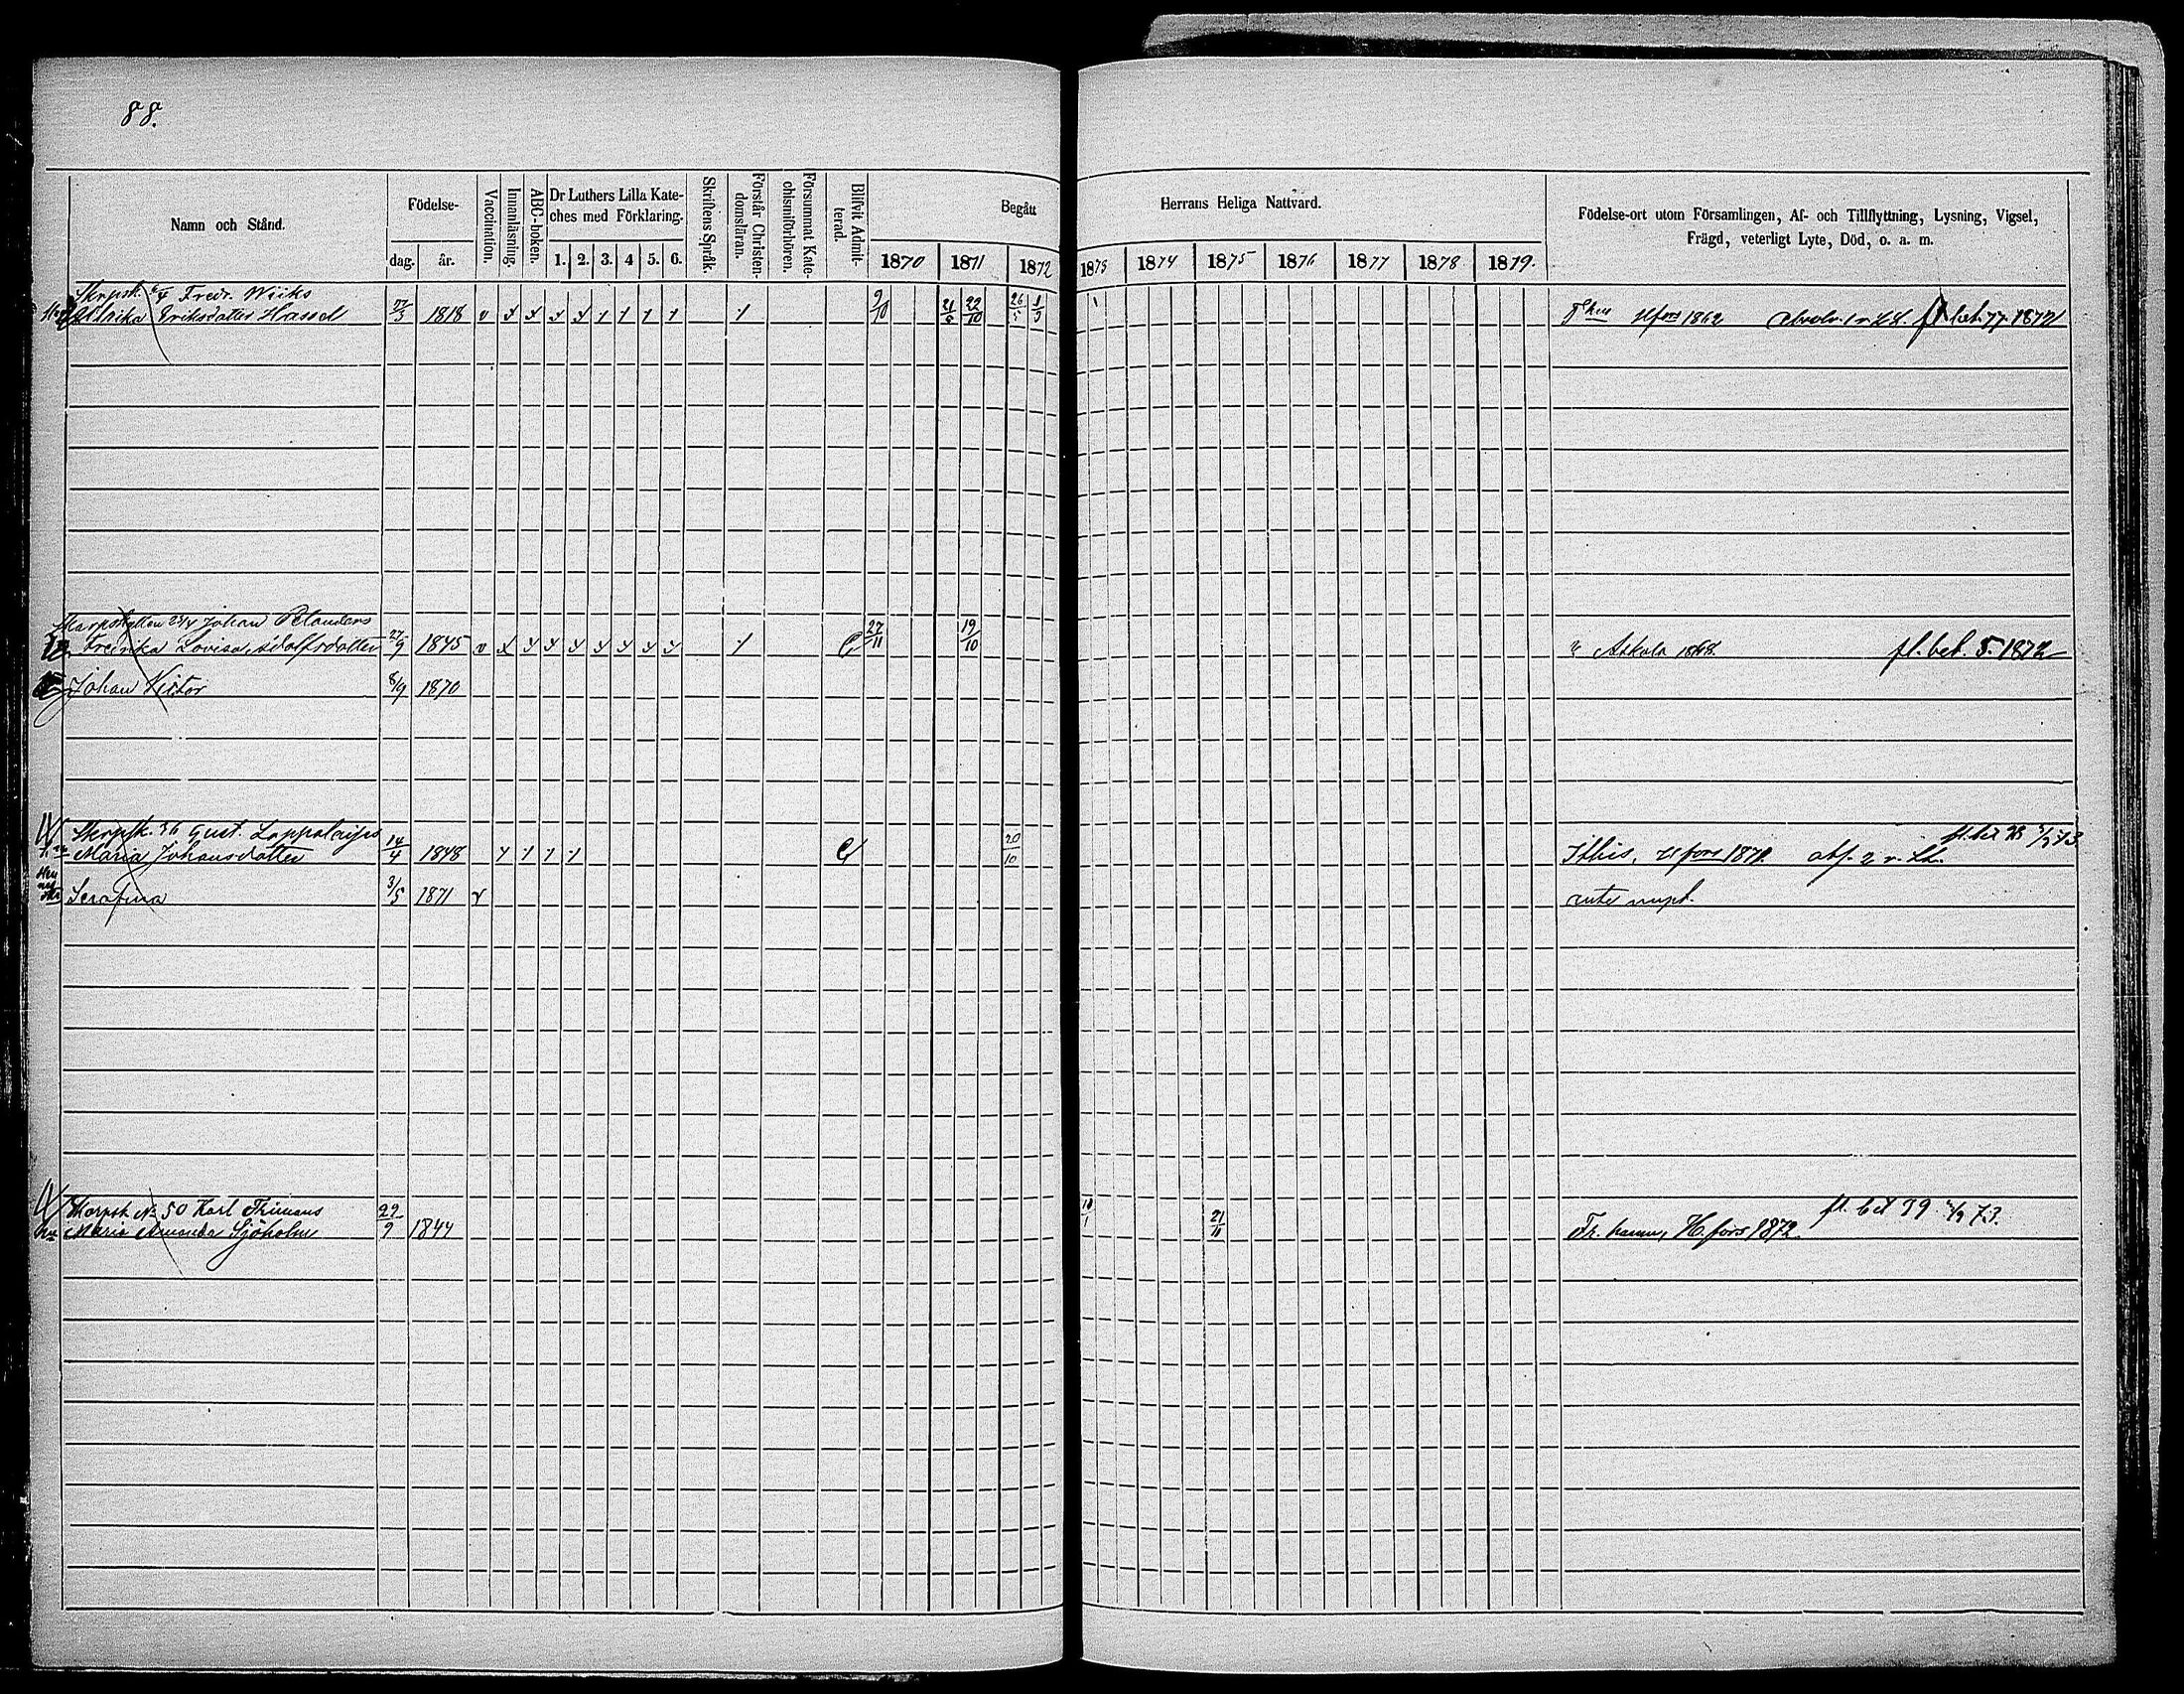 88.
Namn och Stånd.
Födelse-
dag. år.
Vaccination.
Innanläsning.
ABC-boken.
Dr Luthers Lilla Kate-
ches med Förklaring.
1. 2. 3. 4 5. 6.
Skriftens Språk.
Förstår Christen-
domsläran.
Försummat Kate-
chismiförhören.
Blifvit Admit-
terad.
Begått
1870 1871 1872
Herrans Heliga Nattvard.
1873 1874 1875 1876 1877 1878 1879.
Födelse-ort utom Församlingen, Af- och Tillflyttning, Lysning, Vigsel,
Frägd, veterligt Lyte, Död, o. a. m.
Skrpsk. Fredr. Wiiks
Ulrika Eriksdotter Hassel 1818 v 9/10 21/8 22/10 26/5 Hfors 1862 fl. bet. 77. 1872
Skarpskytten 23/4 Johan Pelanders
Fredrika Lovisa Adolfsdotter 27/9 1845 v 27/11 19/10 Askola 1868. fl. bet. 5. 1872
Johan Victor 8/9 1870
Skrpsk. 36 Gust. Lappalaises fl. bet 73
Maria Johansdotter 14/4 1848 20/10 Hfors 1871.
Serafina 3/5 1871 v ante nupt.
Skarpsk No 50 Karl Thimans fl. bet 39 73.
Maria Amanda Sjöholm 29/9 1844 21/11 Fr. hamn, H.fors 1872.